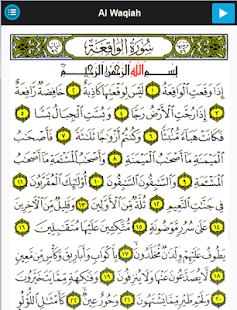 Al Waqiah
سُورَةُ الْوَاقِعَةِ
بِسْمِ اللَّهِ الرَّحْمَنِ الرَّحِيمِ
إِذَا وَقَعَتِ الْوَاقِعَةُ ۝ لَيْسَ لِوَقْعَتِهَا كَاذِبَةٌ ۝ خَافِضَةٌ رَّافِعَةٌ
۝ إِذَا رُجَّتِ الْأَرْضُ رَجًّا ۝ وَبُسَّتِ الْجِبَالُ بَسًّا ۝
فَكَانَتْ هَبَاءً مُّنبَثًّا ۝ وَكُنتُمْ أَزْوَاجًا ثَلَاثَةً ۝ فَأَصْحَابُ
الْمَيْمَنَةِ مَا أَصْحَابُ الْمَيْمَنَةِ ۝ وَأَصْحَابُ الْمَشْأَمَةِ مَا أَصْحَابُ الْمَشْأَمَةِ
۝ وَالسَّابِقُونَ السَّابِقُونَ ۝ أُولَٰئِكَ الْمُقَرَّبُونَ ۝
فِي جَنَّاتِ النَّعِيمِ ۝ ثُلَّةٌ مِّنَ الْأَوَّلِينَ ۝ وَقَلِيلٌ مِّنَ الْآخِرِينَ
۝ عَلَىٰ سُرُرٍ مَّوْضُونَةٍ ۝ مُّتَّكِئِينَ عَلَيْهَا مُتَقَابِلِينَ ۝
يَطُوفُ عَلَيْهِمْ وِلْدَانٌ مُّخَلَّدُونَ ۝ بِأَكْوَابٍ وَأَبَارِيقَ وَكَأْسٍ مِّن مَّعِينٍ
۝ لَّا يُصَدَّعُونَ عَنْهَا وَلَا يُنزِفُونَ ۝ وَفَاكِهَةٍ مِّمَّا يَتَخَيَّرُونَ
۝ وَلَحْمِ طَيْرٍ مِّمَّا يَشْتَهُونَ ۝ وَحُورٌ عِينٌ ۝ كَأَمْثَالِ اللُّؤْلُؤِ